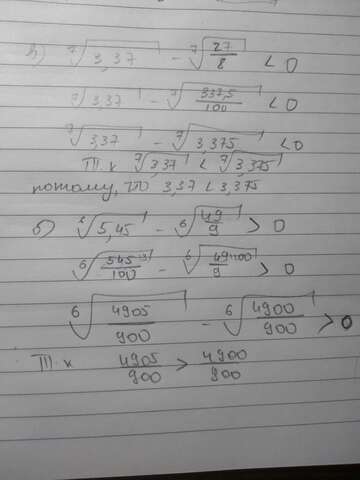 в) ⁷√3,37 - ⁷√27/8 < 0
⁷√3,37 - ⁷√337,5/100 < 0
⁷√3,37 - ⁷√3,375 < 0
Т.к ⁷√3,37 < ⁷√3,375
потому, что 3,37 < 3,375
б) ⁶√5,45 - ⁶√49/9 > 0
⁶√545⁽⁹/100 - ⁶√49⁽¹⁰⁰/9 > 0
⁶√4905/900 - ⁶√4900/900 > 0
Т.к 4905/900 > 4900/900